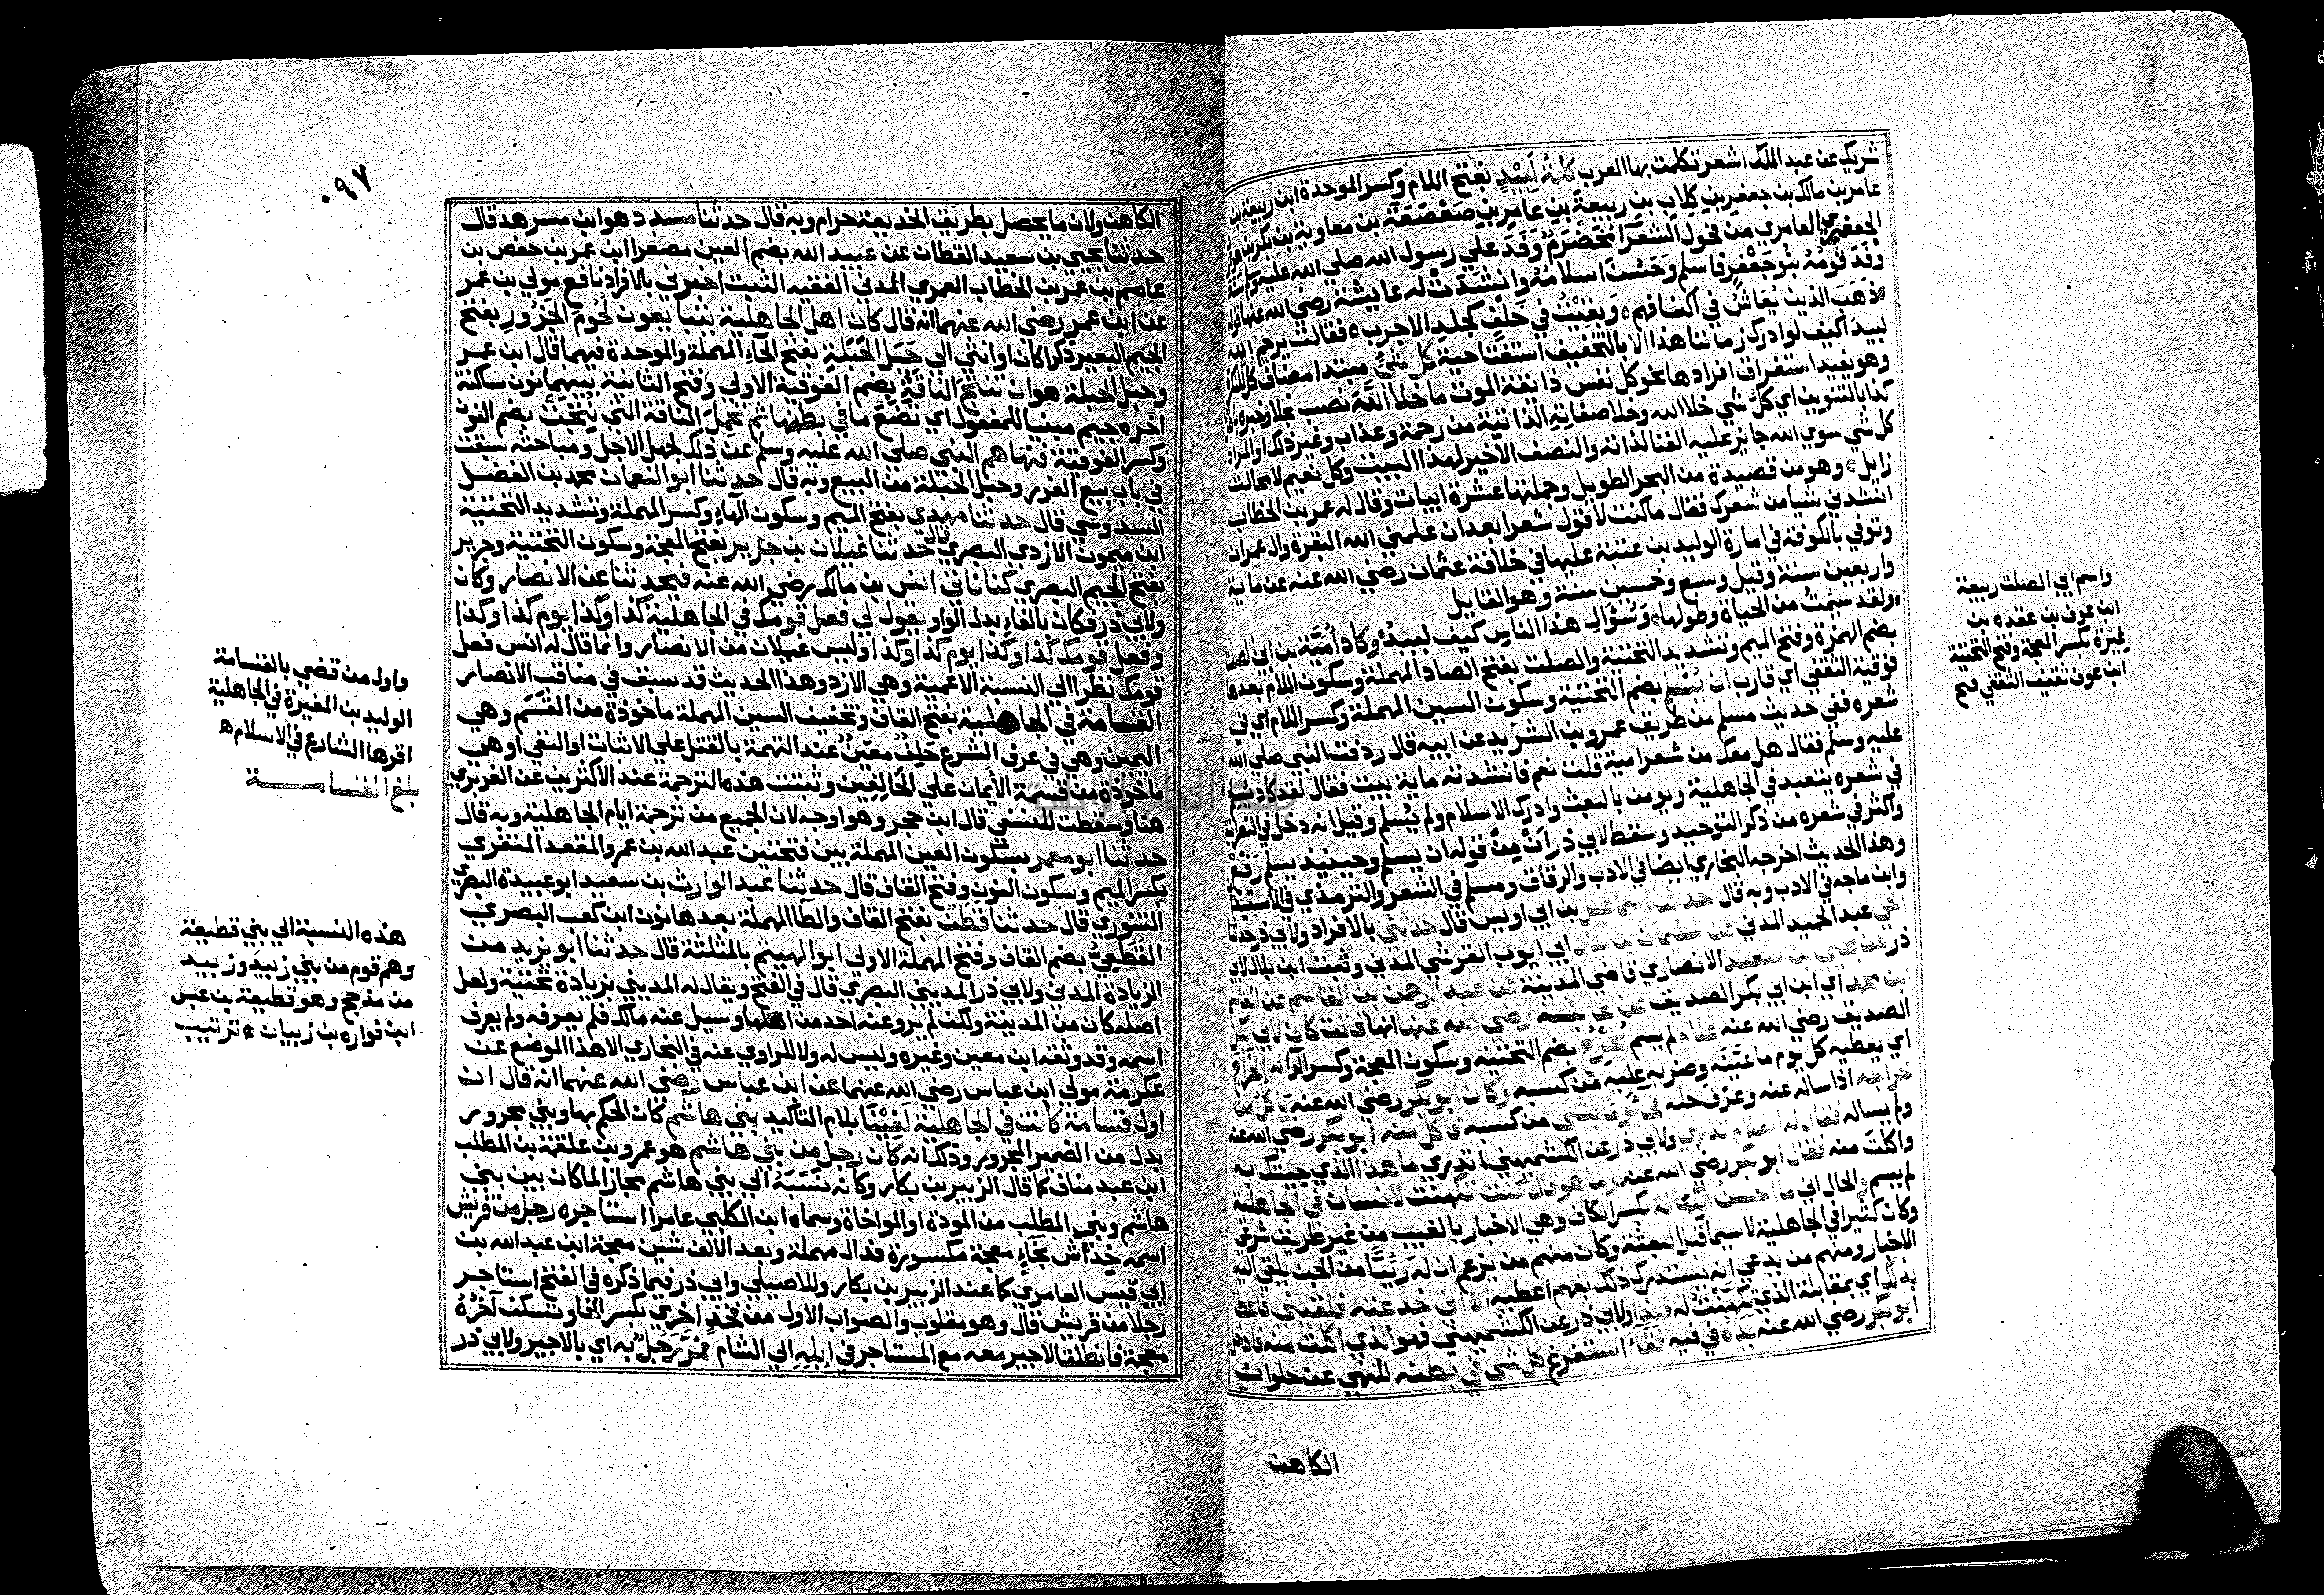 شريك عن عبد الملك اشعر تكلمت بها العرب كلمة لَبِيْدٍ بفتح اللام وكسر الموحدة ابن ربيعة بن
عامر بن مالك بن جعفر بن كِلابِ بن ربيعةَ بن عامِرِ بنِ صَعْصَعَةَ بن معاوية بن بكر بن
الجعفري العامري من فحول الشعرآ مُخَضْرَمٌ وَفَدَ علي رسول الله صلي الله عليه وسلم سنة
وَفَدَ قَومُهُ بنُو جَعْفَرٍ فاسلم وَحَسُنَ اسلامُهُ وانشَدَتْ له عايشة رضي الله عنها قوله
ذَهَبَ الذين يُعَاشُ في اكنافهم ٥ وَبَقِيْتُ في خَلَفٍ كجلدِ الاجرب ٥ فقالت يرحم الله
لبيدَ اكيف لو ادرك زماننا هذا الا بالتخفيف استفتاحية كل شئٍ مبتدا مضاف للنكرة
وهو يفيد استغراق افرادها نحو كل نفس ذايقة الموت ما خلا اللهَ نصب بخلا وخبره
كذا بالتنوين اي كل شي خلا الله وخلا صفاته الذاتية من رحمة وعذاب وغير ذلك او المراد
كل شي سوي الله جايز عليه الفنا لذاته والنصف الاخير لهذا البيت وكل نعيم لا محالة
زايل ٥ وهو من قصيدة من البحر الطويل وجملتها عشرة ابيات وقال له عمر بن الخطاب
انشدني شيا من شعرك فقال ما كنت لاقول شعرا بعد ان علمني الله البقرة وال عمران
وتوفي بالكوفة في امارة الوليد بن عقبة عليها في خلافة عثمان رضي الله عنه عن ماية
واربعين سنة وقيل وسبع وخمسين سنة وهو القايل
ولقد سيمتُ من الحياة وطولها ٥ وَسُؤَالِ هذا الناسِ كيف لبيدُ ٥ وكاد اُمَيَّة بن ابي الصلت
بضم الهمزة وفتح الميم وتشديد التحتية والصلت بفتح الصاد المهملة وسكون اللام بعدها
فوقية الثقفي اي قارب ان يُسْلِمَ بضم التحتية وسكون السين المهملة وكسر اللام اي في
شعره ففي حديث مسلم من طريق عمرو بن الشريد عن ابيه قال ردفت النبي صلي الله
عليه وسلم فقال هل معك من شعر امية قلت نعم فانشدته ماية بيت فقال لقد كاد يسلم
في شعره يتعبد في الجاهلية ويومن بالبعث وادرك الاسلام ولم يُسلم وقيل انه دخل في النصرانية
واكثر في شعره من ذكر التوحيد وسقط لابي ذر اَنْ مِنْ قوله ان يسلم وحينيذ يسلم رَفْعٌ
وهذا الحديث اخرجه البخاري ايضا في الادب والرقاق ومسلم في الشعر والترمذي في الاستيذان
وابن ماجه في الادب وبه قال حدثنا اسماعيل بن ابي اويس قال حدثني بالافراد ولابي ذر حدثنا
اخي عبد الحميد المدني عن سليمان بن بلال ابي ايوب القرشي المدني وثبت ابن بلال لابي
ذر عن يحيي بن سعيد الانصاري قاضي المدينة عن عبد الرحمن بن القاسم عن القاسم
ابن محمد اي ابن ابي بكر الصديق عن عايشة رضي الله عنها انها قالت كان لابي بكر
الصديق رضي الله عنه غلام لم يسم يُخْرِجُ بضم التحتية وسكون المعجمة وكسر الرآ له الخَرَاجَ
اي يعطيه كل يوم ما عَيَّنَه وضربه عليه من كسبه وكان ابو بكر رضي الله عنه ياكل من
خراجه اذا ساله عنه وعرَف حله فجآ يوما بشي من كسبه فاكل منه ابو بكر رضي الله عنه
ولم يساله فقال له الغلام تدري ولابي ذر عن الكشميهني اتدري ما هذا الذي جيتك به
واكلت منه فقال ابو بكر رضي الله عنه وما هو قال كنت تكهنت لانسان في الجاهلية
لم يسم والحال اني ما احسن الكهانة بكسر الكاف وهي الاخبار بالغيب من غير طريق شرعي
وكان كثيرا في الجاهلية لا سيما قبل البعثة وكان منهم من يزعم ان له رَئِيًّا من الجن يلقي اليه
الاخبار ومنهم من يدعي انه يستدرك ذلك بفهم اُعطيه الا اني خدعته فلقيني فاعطاني
بذلك اي بمقابلة الذي تَكَهَّنْتُ له فهذا ولابي ذر عن الكشميهني فهو الذي اكلت منه فادخل
ابو بكر رضي الله عنه يده في فيه فقآ استفرغ كل شي في بطنه للنهي عن حلوان
الكاهن
واسم ابي الصلت ربيعة
ابن عوف بن عقده بن
غِيَرة بكسر المعجمة وفتح التحتية
ابن عوف ثقيف الثقفي فتح
٠٩٧
الكاهن ولان ما يحصل بطريق الخديعة حرام وبه قال حدثنا مسدد هو ابن مسرهد قال
حدثنا يحيي بن سعيد القطان عن عبيد الله بضم العين مصغرا ابن عمر بن حفص بن
عاصم بن عمر بن الخطاب العمري المدني الفقيه الثبت اخبرني بالافراد نافع مولي بن عمر
عن ابن عمر رضي الله عنهما انه قال كان اهل الجاهلية يتبايعون لُحُومَ الجَزُورِ بفتح
الجيم البعير ذكرا كان او انثي الي حَبَلِ الحَبَلَةِ بفتح الحآءِ المهملة والموحدة فيهما قال ابن عمر
وحبل الحبلة هو ان تنتجَ الناقةُ بضم الفوقية الاولي وفتح الثانية بينهما نون ساكنة
آخره جيم مبنيا للمفعول اي تضع ما في بطنها ثم تحمِلَ الناقة التي نُتِجَتْ بضم النون
وكسر الفوقية فنهاهم النبي صلي الله عليه وسلم عن ذلك لجهل الاجل ومباحثه سبقت
في باب بيع الغرر وحبل الحبلة من البيع وبه قال حدثنا ابو النعمان محمد بن الفضل
السدوسي قال حدثنا مهدي بفتح الميم وسكون الهآءِ وكسر المهملة وتشديد التحتية
ابن ميمون الازدي البصري قال حدثنا غيلان بن جرير بفتح المعجمة وسكون التحتية وجرير
بفتح الجيم البصري كنا ناتي انس بن مالك رضي الله عنه فيحدثنا عن الانصار وكان
ولابي ذر فكان بالفاءِ بدل الواو يقول لي فعل قومك في الجاهلية كذا وكذا يوم كذا وكذا
وفعل قومك كذا وكذا يوم كذا وكذا وليس غيلان من الانصار وانما قال له انس فعل
قومك نظرا الي النسبة الاعمية وهي الازد وهذا الحديث قد سبق في مناقب الانصار
القسامة في الجاهلية بفتح القاف وتخفيف السين المهملة ماخوذة من القَسَم وهي
اليمين وهي في عرف الشرع حَلِفٌ معيَّنٌ عند التهمة بالقتل علي الاثبات او النفي او هي
ماخوذة من قسمة الأَيمان علي الحَالِفِين وثبتت هذه الترجمة عند الاكثرين عن الفربري
هنا وسقطت للنسفي قال ابن حجر وهو اوجه لان الجميع من ترجمة ايام الجاهلية وبه قال
حدثنا ابو معمر بسكون العين المهملة بين فتحتين عبد الله بن عمرو المقعد المنقري
بكسر الميم وسكون النون وفتح القاف قال حدثنا عبد الوارث بن سعيد ابو عبيدة البصري
التنوري قال حدثنا قطن بفتح القاف والطآ المهملة بعدها نون ابن كعب البصري
القُطَعِيُّ بضم القاف وفتح المهملة الاولي ابو الهيثم بالمثلثة قال حدثنا ابو يزيد من
الزيادة المدني ولابي ذر المديني البصري قال في الفتح ويقال له المديني بزيادة تحتية ولعل
اصله كان من المدينة ولكن لم يرو عنه احد من اهلها وسيل عنه مالك فلم يعرفه ولم يعرف
اسمه وقد وثقه ابن معين وغيره وليس له ولا للراوي عنه في البخاري الا هذا الموضع عن
عكرمة مولي ابن عباس رضي الله عنهما عن ابن عباس رضي الله عنهما انه قال ان
اول قسامة كانت في الجاهلية لَفِيْنَا بلام التاكيد بني هاشم كان الحكم بها وبني مجرور
بدل من الضمير المجرور وذلك انه كان رجل من بني هاشم هو عمرو بن علقمة بن المطلب
ابن عبد مناف كما قال الزبير بن بكار وكانه نَسَبَهُ الي بني هاشم مجازا لما كان بين بني
هاشم وبني المطلب من المودة او المواخاة وسماه ابن الكلبي عامرا استاجره رجل من قريش
اسمه خِدَاش بخآءٍ معجمة مكسورة فدال مهملة وبعد الالف شين معجمة ابن عبد الله بن
ابي قيس العامري كما عند الزبير بن بكار وللاصيلي وابي ذر فيما ذكره في الفتح استاجر
رجلا من قريش قال وهو مقلوب والصواب الاول من فخذٍ اخري بكسر الخا وتسكن آخرُهُ
معجمة فانطلق الاجير معه مع المستاجر في ابله الي الشام فمرَّ رَجُلٌ به اي بالاجير ولابي ذر
واول من قضي بالقسامة
الوليد بن المغيرة في الجاهلية
اقرها الشارع في الاسلام ه
بلغ القسامة
هذه النسبة الي بني قطيعة
وهم قوم من بني زبيد وزبيد
من مذحج وهو قطيعة بن عبس
ابن فزاره بن ذبيان ٥ ترتيب